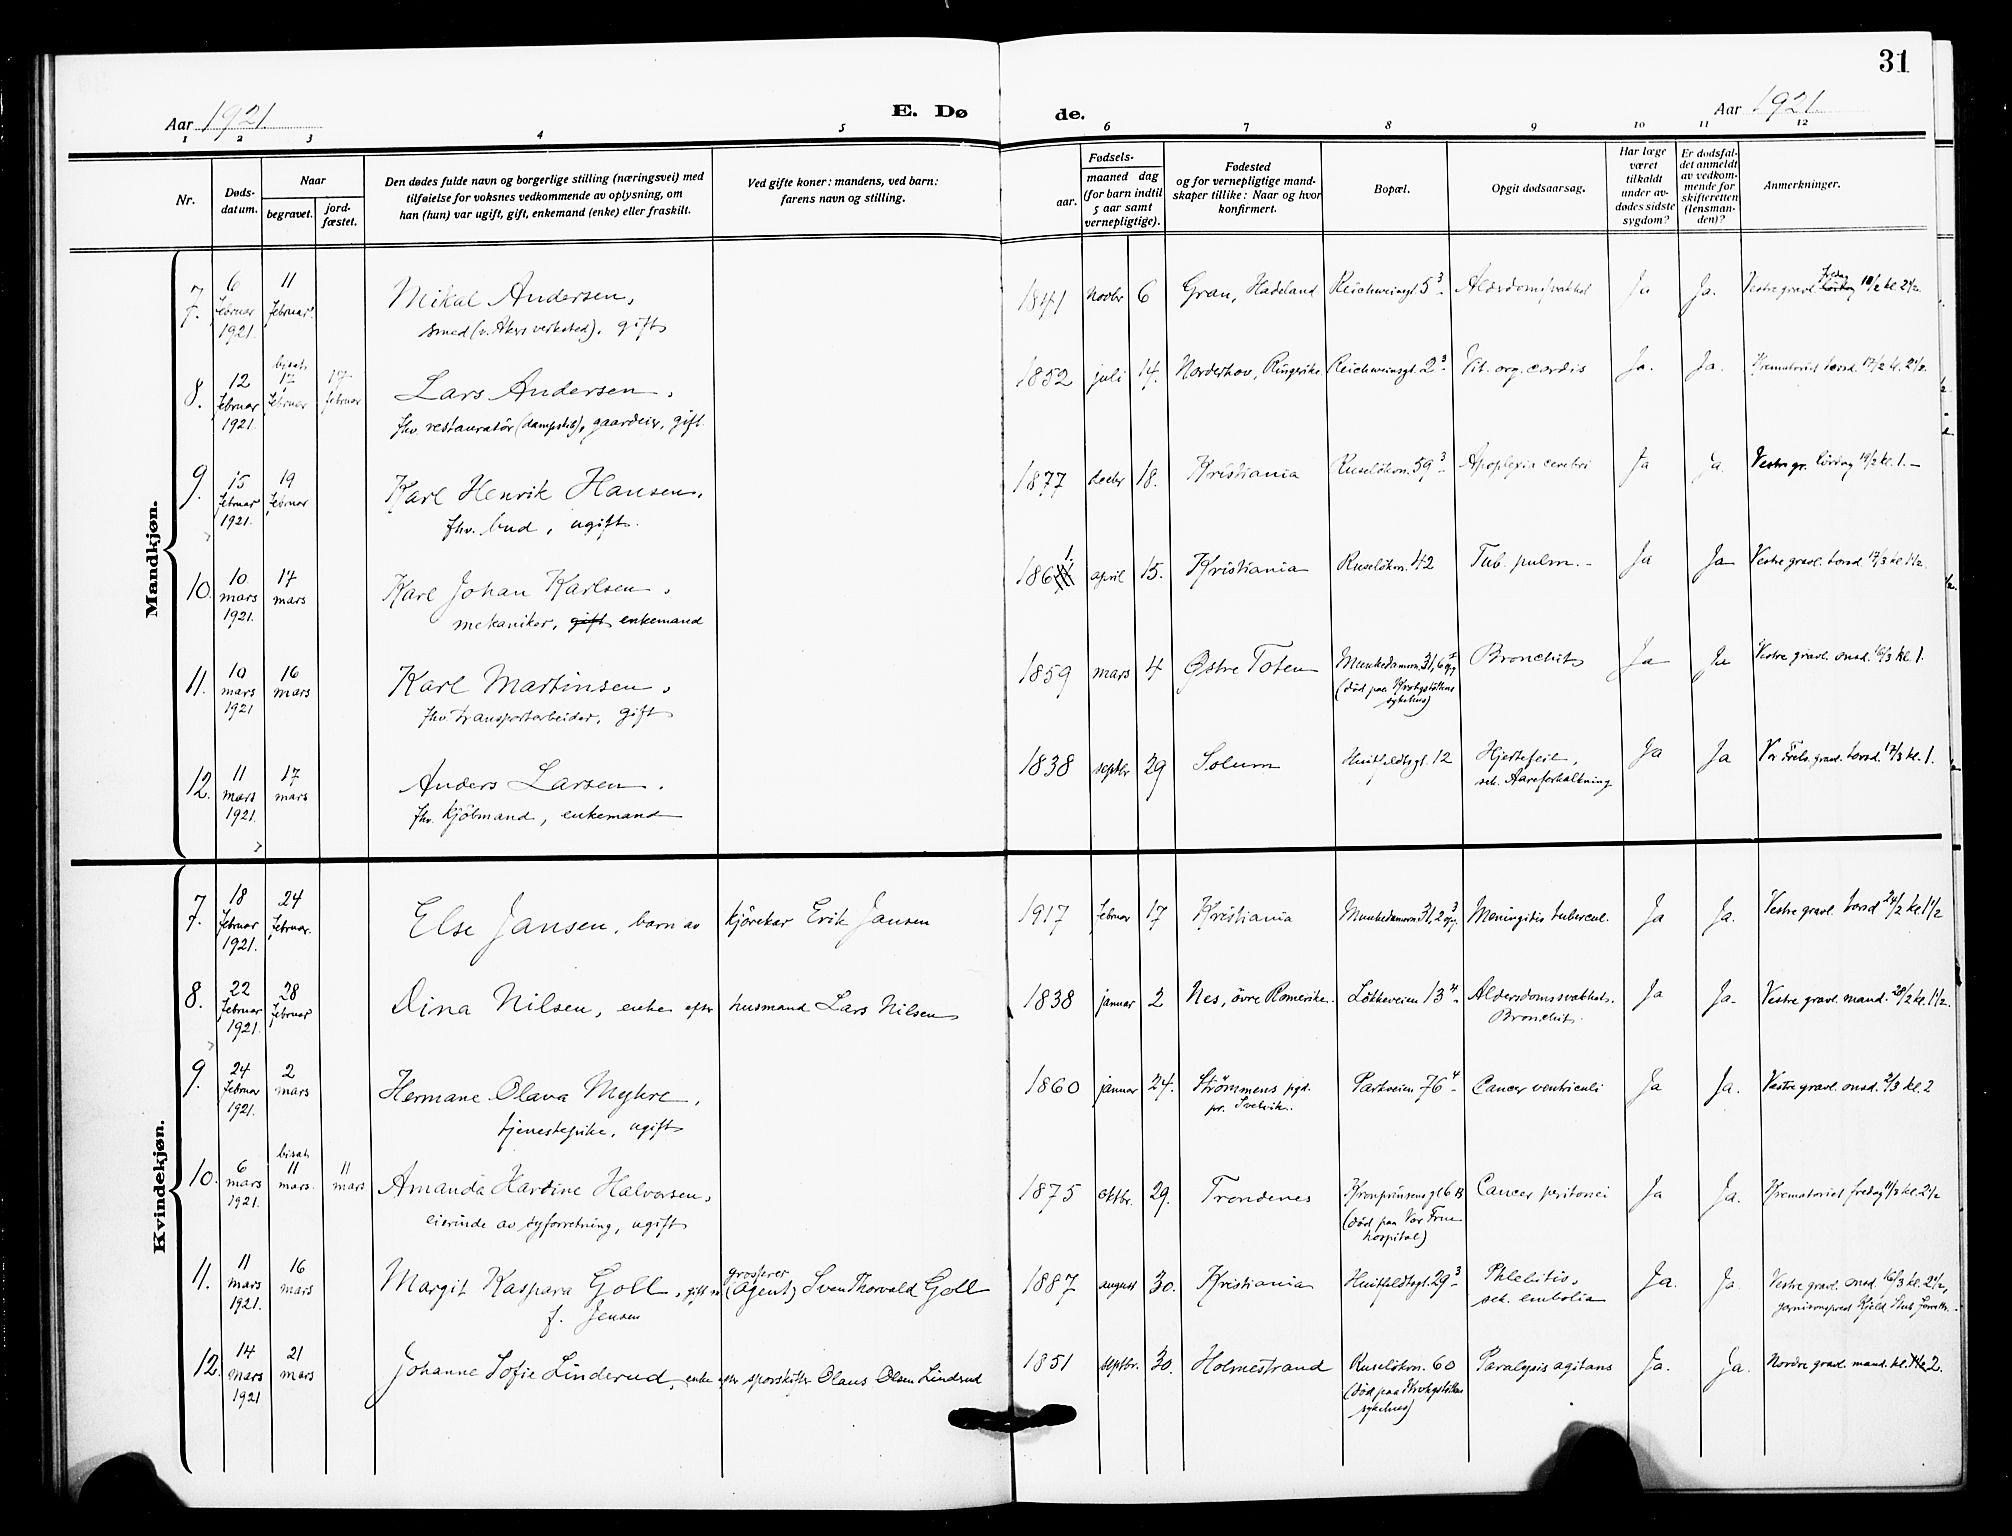 31
Aar 1921.
E. Dø
de.
Aar 1921.
1 2 3 4 5 6 7 8 9 10 11 12
Nr.
Døds-
datum.
Naar
begravet.
jord-
fæstet.
Den dødes fulde navn og borgerlige stilling (næringsvei) med
tilføielse for voksnes vedkommende av oplysning, om
han (hun) var ugift, gift, enkemand (enke) eller fraskilt.
Ved gifte koner: mandens, ved barn:
farens navn og stilling.
Fødsels-
aar.
maaned dag
(for barn indtil
5 aar samt
vernepligtige).
Fødested
og for vernepligtige mand-
skaper tillike: Naar og hvor
konfirmert.
Bopæl.
Opgit dødsaarsag.
Har læge
været
tilkaldt
under av-
dødes sidste
sygdom?
Er dødsfal-
det anmeldt
av vedkom-
mende for
skifteretten
(lensman-
den)?
Anmerkninger.
Mandkjøn.
7. 6 februar 1921. 11 februar.
Mikal Andersen,
smed (v. Akers verksted), gift
1841 novbr 6 Gran, Hadeland Reichweinsgt. 5³ Alderdomssvakhet Ja Ja. Vestre gravl. fredag 11/2 kl. 2 1/2.
8. 12 februar 1921. bisat 17 februar 17 februar
Lars Andersen,
fhv. restauratör (dampsk.), gaardeier, gift.
1852 juli 14. Norderhov, Ringerike. Reichweinsgt. 2³ Vit. org. cordis Ja. Ja. Krematoriet torsd. 17/2 kl. 2 1/2.
9. 15 februar 1921. 19 februar
Karl Henrik Hansen,
fhv. bud, ugift.
1877 decbr 18. Kristiania Ruselökvn. 59³ Apoplexia cerebri Ja Ja. Vestre gr. lördag 19/2 kl. 1.–
10. 10 mars 1921. 17 mars
Karl Johan Karlsen,
mekaniker, gift enkemand
1861. april 15. Kristiania Ruselökvn. 42 Tub. pulm. Ja Ja Vestre gravl. torsd. 17/3 kl. 1 1/2.
11. 10 mars 1921 16 mars
Karl Martinsen,
fhv. transportarbeider, gift
1859 mars 4 Østre Toten Munkedamsvn. 31, 6 opg. Bronchit Ja Ja Vestre gravl. onsd. 16/3 kl. 1.
(död paa Krohgstöttens
sykehus)
12. 11 mars 1921. 17 mars
Anders Larsen.
fhv. kjöbmand, enkemand
1838 septbr 29 Solum Huitfeldtsgt. 12 Hjertefeil, Ja Ja Vor Frels. gravl. torsd. 17/3 kl. 1.
sek. Aareforkalkning
Kvindekjøn.
7. 18 februar 1921. 24 februar.
Else Jansen, barn av kjörekar Erik Jansen
1917 februar 17 Kristiania Munkedamsvn. 31, 2 opg. Meningitis tubercul. Ja Ja. Vestre gravl. torsd 24/2 kl. 1 1/2
8. 22 februar 1921. 28 februar
Dina Nilsen, enke efter husmand Lars Nilsen
1838 januar 2 Nes, övre Romerike. Lökkeveien 13⁴ Aldersdomssvakhet. Ja Ja. Vestre gravl. mand. 28/2 kl. 1 1/2.
Bronchit.
9. 24 februar 1921. 2 mars
Hermane Olava Myhre,
tjenestepike, ugift
1860 januar 24. Strömmens pgd. Parkveien 76⁴ Cancer ventriculi Ja Ja. Vestre gravl. onsd. 2/3 kl. 2
pr. Svelvik.
10. 6 mars 1921. bisat 11 mars. 11 mars
Amanda Hardine Halvorsen,
eierinde av syforretning, ugift
1875 oktbr. 29. Trondenes Kronprinsensgt 6 B Cancer peritonei Ja Ja. Krematoriet fredag 11/3 kl. 2 1/2
(död paa Vor Frue
hospital)
11. 11 mars 1921. 16 mars
Margit Kaspara Goll, gift m. grosserer (Agent) Sven Thorvald Goll
f. Jensen
1887 august 30. Kristiania Huitfeldtsgt. 29³ Phlebitis, Ja. Ja. Vestre gravl. onsd. 16/3 kl. 2 1/2,
sek. embolia
garnisonsprest Kjeld Stub
12. 14 mars 1921 21 mars
Johanne Sofie Linderud, enke efter sporskifter Olaus Olsen Linderud
1851 septbr. 30. Holmestrand Ruselökvn. 60 Paralysis agitans Ja. Ja. Nordre gravl. mand. kl. 2.
(död paa Krohgstöttens
sykehus)